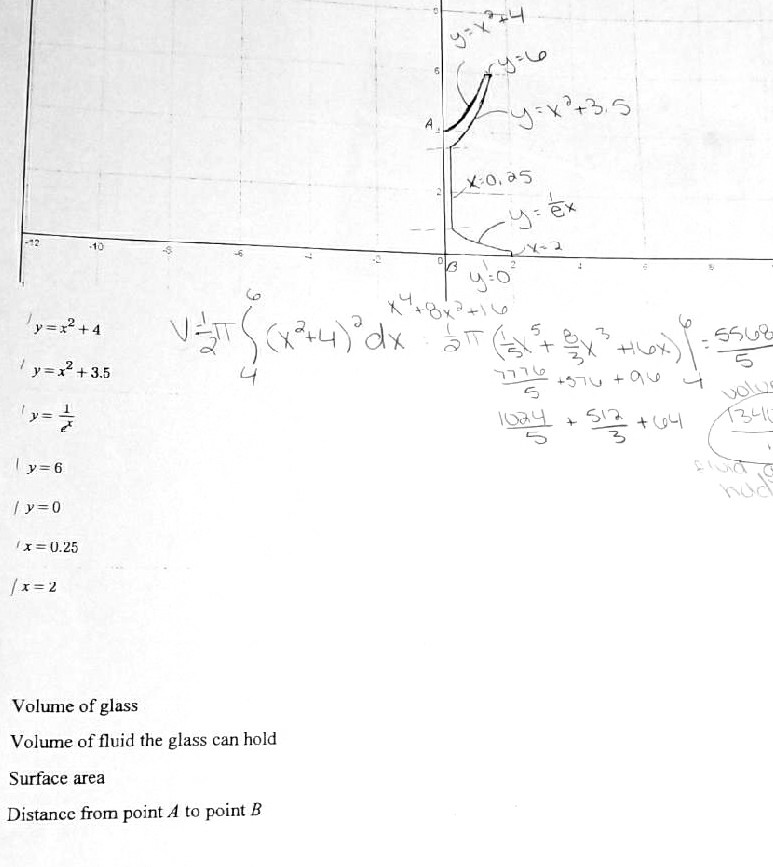 y=x²+4
y=6
6
y=x²+3.5
A
x=0.25
2
y=1/eˣ
x=2
-12 -10 -8 -6 -4 -2 0 B 2 4 6 8
y=0
6
x⁴+8x²+16
V=1/2 π ∫ (x²+4)² dx = 1/2 π (1/5 x⁵ + 8/3 x³ +16x) | 6 = 5568/5
4
4
7776/5 +576 +96
1024/5 + 512/3 +64
y = x² + 4
y = x² + 3.5
y = 1/eˣ
y = 6
y = 0
x = 0.25
x = 2
Volume of glass
Volume of fluid the glass can hold
Surface area
Distance from point A to point B